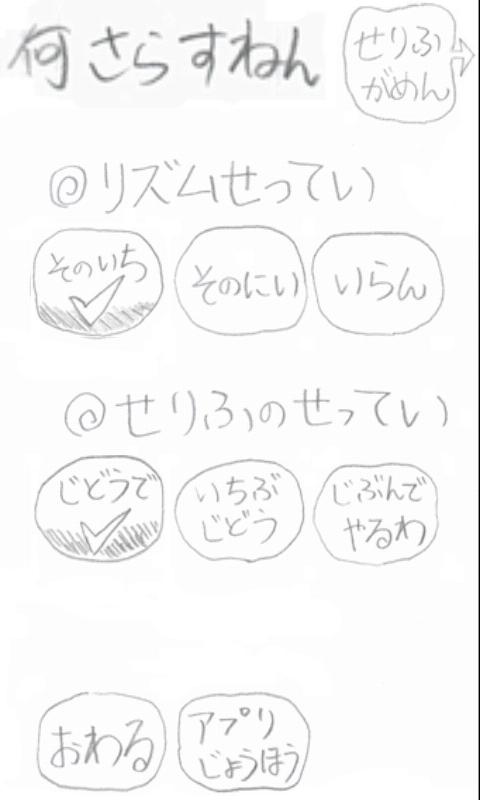 何さらすねん
せりふ
がめん
@リズムせってい
そのいち
そのにい
いらん
@せりふのせってい
じどうで
いちぶ
じどう
じぶんで
やるわ
おわる
アプリ
じょうほう